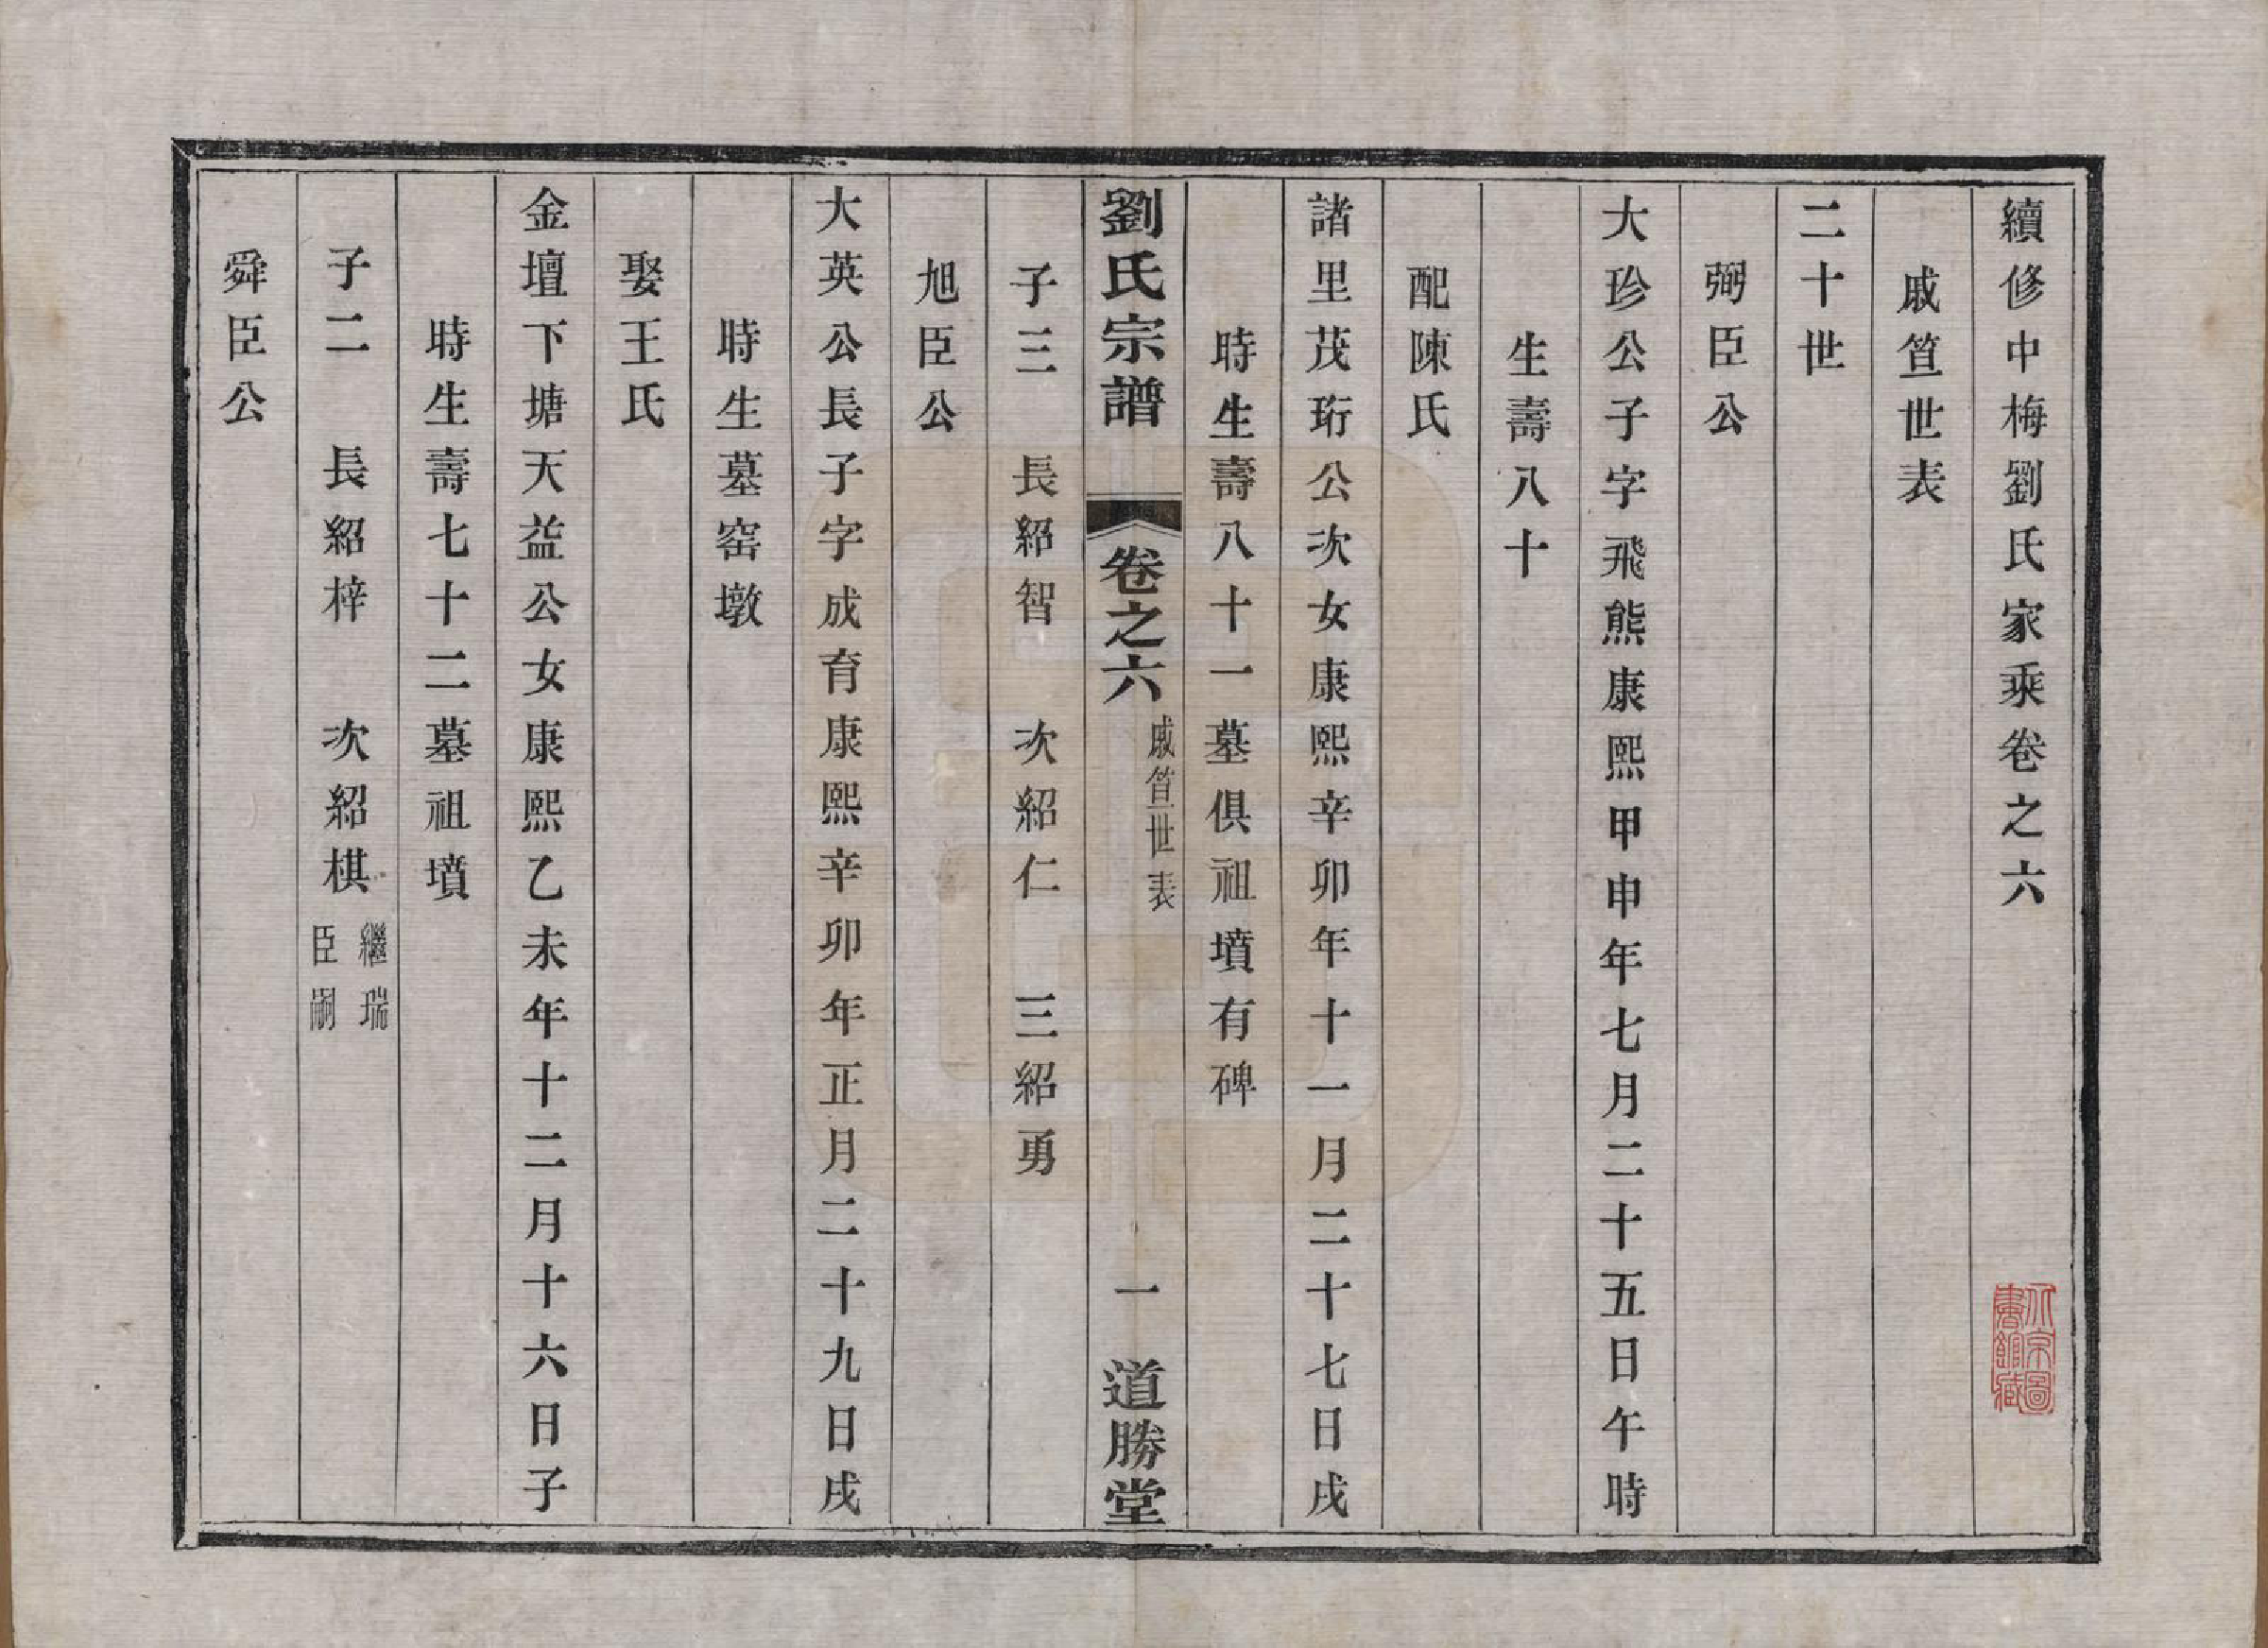 續修中梅劉氏家乘卷之六
戚笪世表
二十世
弼臣公
大珍公子字飛熊康熙甲申年七月二十五日午時
生壽八十
配陳氏
諸里茂珩公次女康熙辛卯年十一月二十七日戌
時生壽八十一墓俱祖墳有碑
劉氏宗譜
卷之六
戚笪世表
一
道勝堂
子三 長紹智 次紹仁 三紹勇
旭臣公
大英公長子字成育康熙辛卯年正月二十九日戌
時生墓窑墩
娶王氏
金壇下塘天益公女康熙乙未年十二月十六日子
時生壽七十二墓祖墳
子二 長紹梓 次紹棋
繼瑞
臣嗣
舜臣公